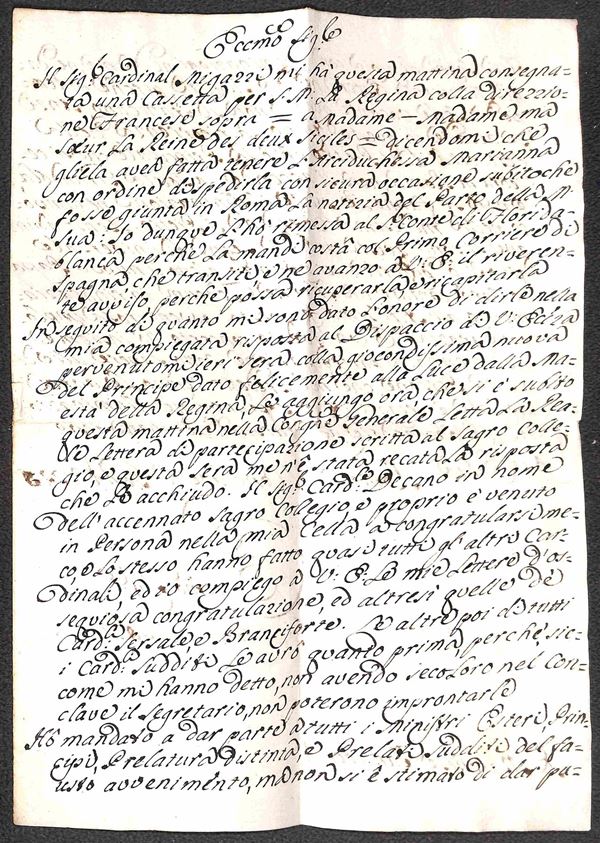 Eccmo Sigre
Il Sigr Cardinal Migazzi mi hà questa mattina consegna=
ta una Cassetta per S. M. La Regina colla direzzio=
ne Francese sopra = a Madame = Madame ma
Sœur La Reine des deux Sicles = dicendomi che
gliela avea fatta tenere L'Arciduchessa Marianna
con ordine di spedirla con sicura occasione subito che
fosse giunta in Roma La notizia del Parto della M.
Sua: Io dunque L'hò rimessa al Sr Conte di Florida=
blanca perchè La mandi costà col Primo Corriere di
Spagna che transiti e ne avanzo a V: E. il riveren=
te avviso perchè possa ricuperarla, e ricapitarla
In seguito di quanto mi sono dato L'onore di dirle nella
mia compiegata risposta al Dispaccio di V: Ecza
pervenutomi ieri sera colla giocondissima nuova
del Principe dato felicemente alla Luce dalla Ma=
està della Regina, Le aggiungo ora, che si è subito
questa mattina nella Congne Generale Letta La Rea=
le Lettera di partecipazione scritta al Sagro Colle=
gio, e questa sera me n'è stata recata La risposta
che Le acchiudo. Il Sigr Cardle Decano in nome
dell'accennato Sagro Collegio, e proprio è venuto
in Persona nella mia Cella a congratularsi me=
co, e Lo stesso hanno fatto quasi tutti gli altri Car=
dinali, ed io compiego a V: E. Le mie Lettere d'os=
sequiosa congratulazione, ed altresì quelle di
Cardli Sersale, e Branciforte. L'altre poi di tutti
i Cardli Sudditi Le avrò quanto prima, perchè, sic=
come mi hanno detto, non avendo seco Loro nel Con=
clave il Segretario, non poterono improntarle
Hò mandato a dar parte a tutti i Ministri Esteri, Prin=
cipi, Prelatura distinta, e Prelati Sudditi del fa=
usto avvenimento, ma non si è stimato di dar pu=